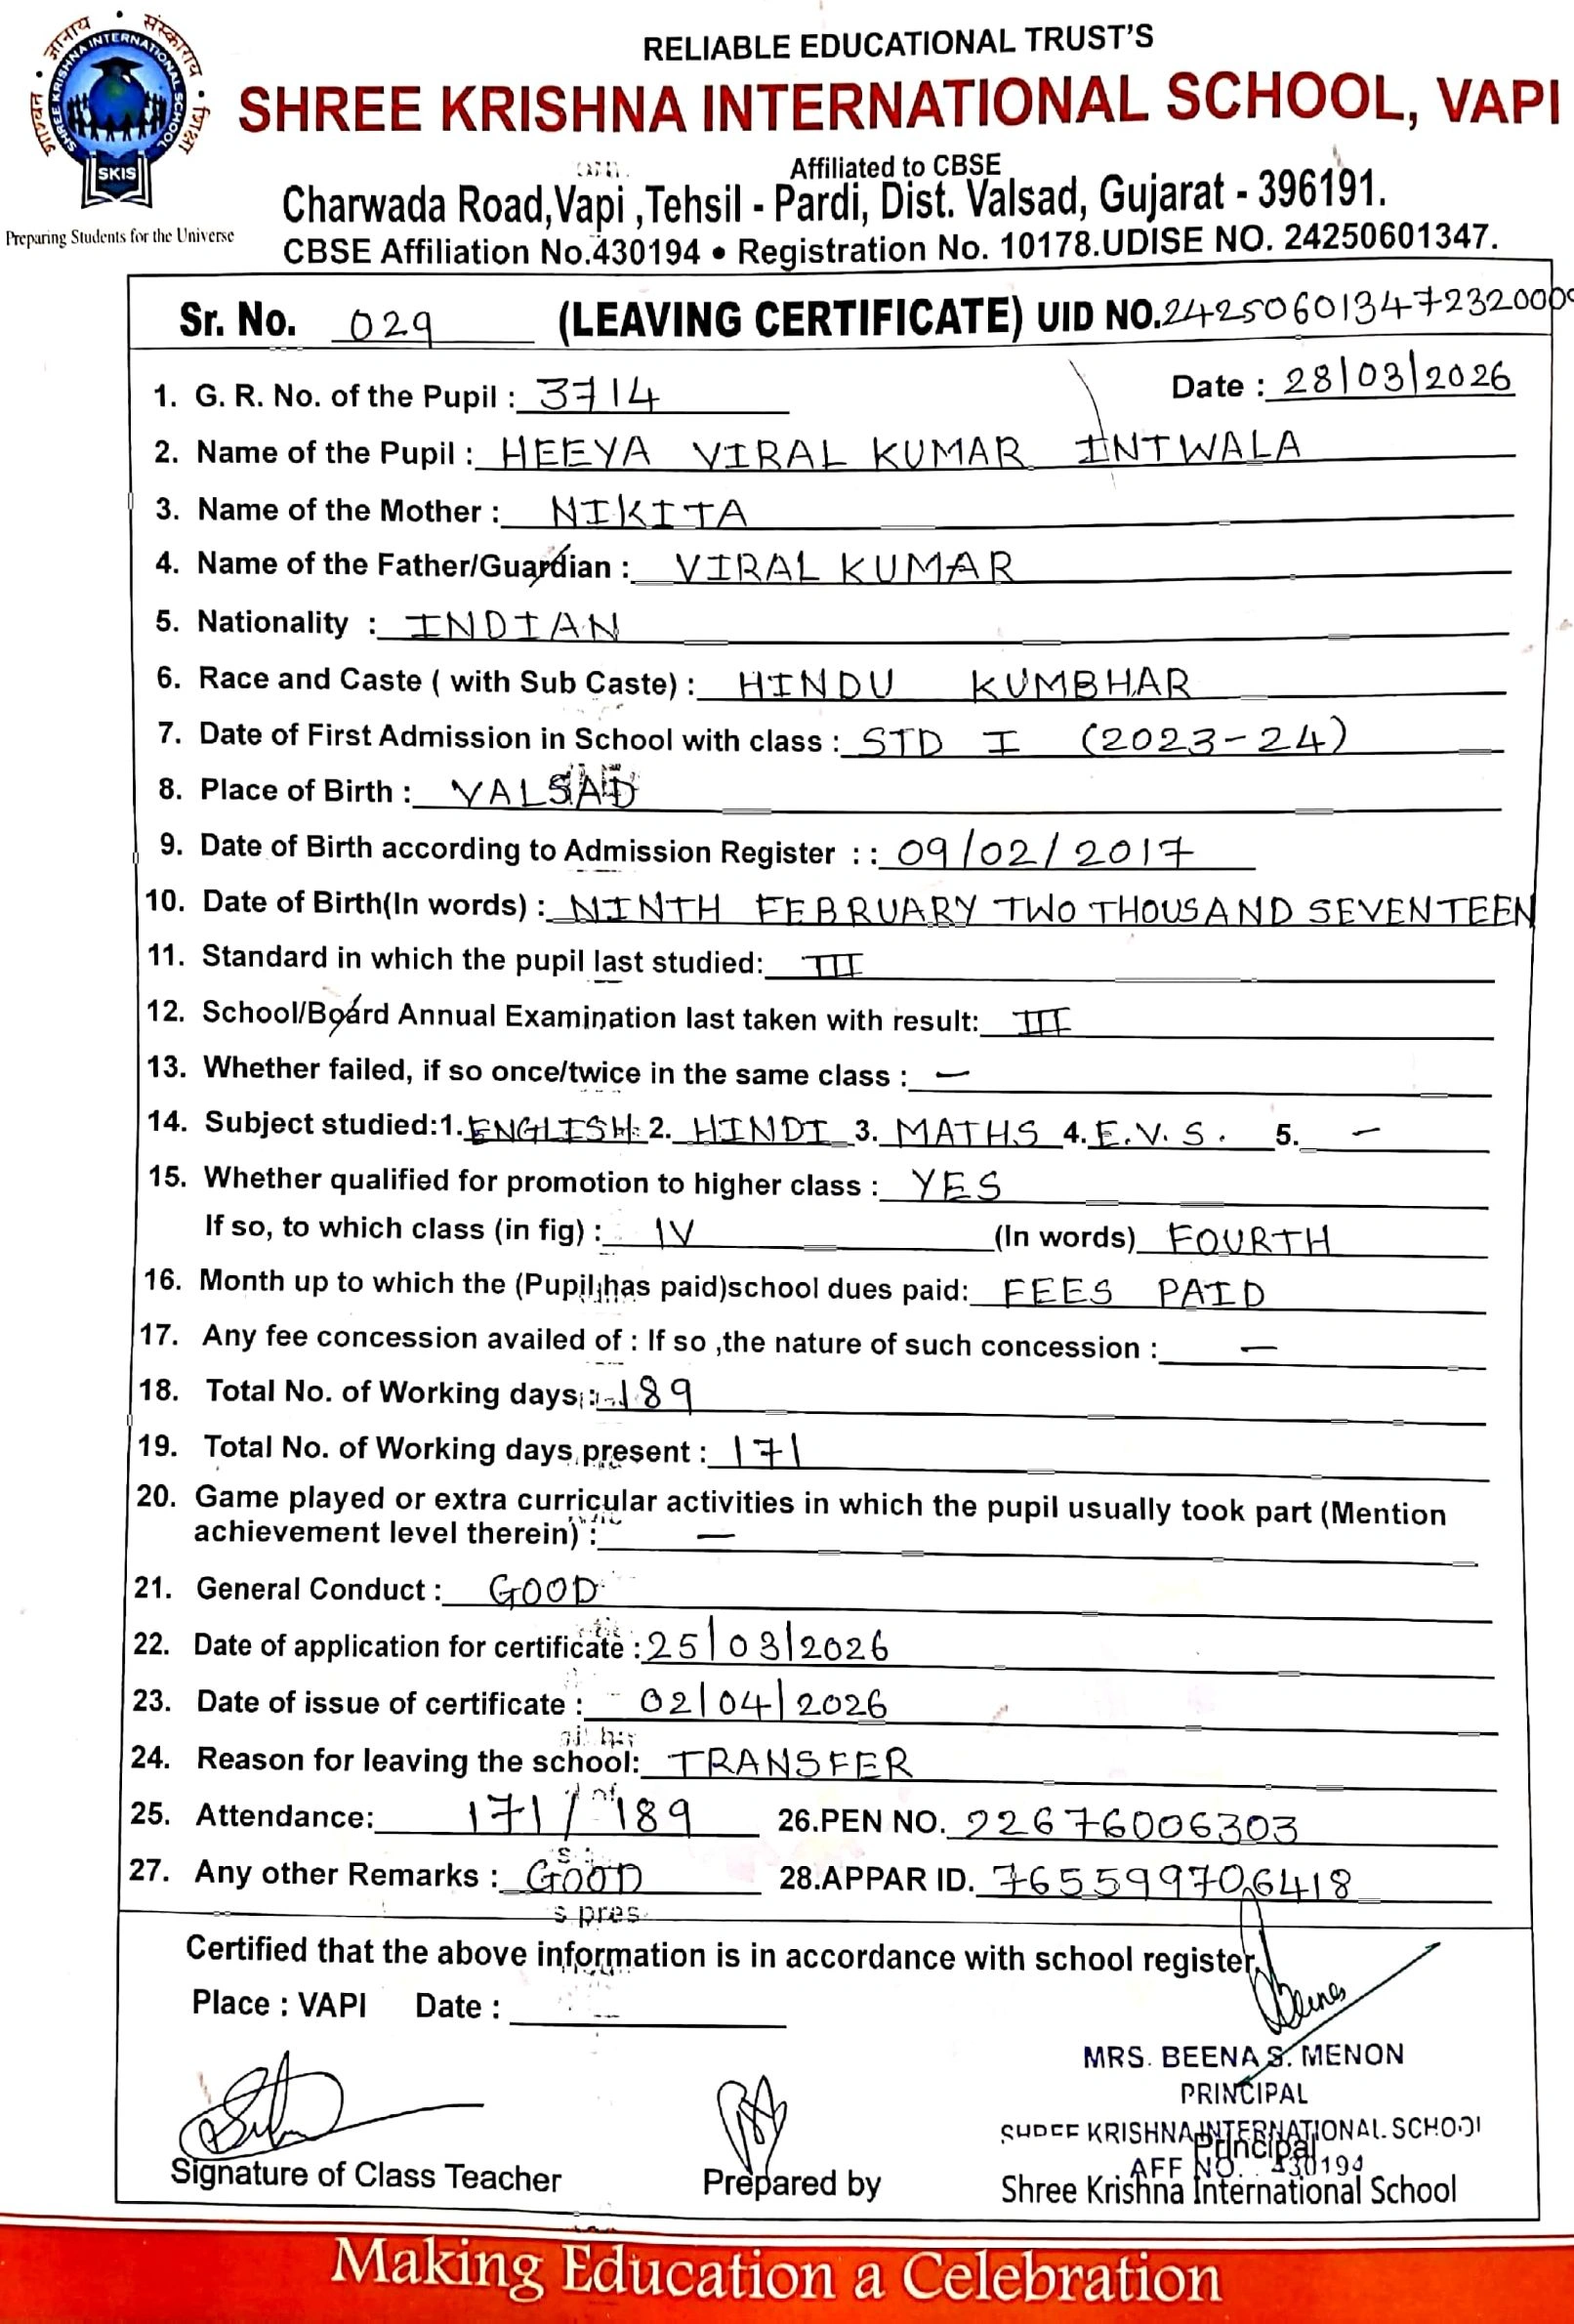 ज्ञानाय • संस्काराय • शिक्षा
SHREE KRISHNA INTERNATIONAL SCHOOL
SKIS
Preparing Students for the Universe
RELIABLE EDUCATIONAL TRUST'S
SHREE KRISHNA INTERNATIONAL SCHOOL, VAPI
Affiliated to CBSE
Charwada Road,Vapi ,Tehsil - Pardi, Dist. Valsad, Gujarat - 396191.
CBSE Affiliation No.430194 • Registration No. 10178.UDISE NO. 24250601347.
Sr. No. 029 (LEAVING CERTIFICATE) UID NO.242506013472320009
1. G. R. No. of the Pupil : 3714 Date : 28/03/2026
2. Name of the Pupil : HEEYA VIRAL KUMAR INTWALA
3. Name of the Mother : NIKITA
4. Name of the Father/Guardian : VIRAL KUMAR
5. Nationality : INDIAN
6. Race and Caste ( with Sub Caste) : HINDU KUMBHAR
7. Date of First Admission in School with class : STD I (2023-24)
8. Place of Birth : VALSAD
9. Date of Birth according to Admission Register : : 09/02/2017
10. Date of Birth(In words) : NINTH FEBRUARY TWO THOUSAND SEVENTEEN
11. Standard in which the pupil last studied: III
12. School/Board Annual Examination last taken with result: III
13. Whether failed, if so once/twice in the same class : —
14. Subject studied:1. ENGLISH 2. HINDI 3. MATHS 4. E.V.S. 5. —
15. Whether qualified for promotion to higher class : YES
If so, to which class (in fig) : IV (In words) FOURTH
16. Month up to which the (Pupil has paid)school dues paid: FEES PAID
17. Any fee concession availed of : If so ,the nature of such concession : —
18. Total No. of Working days : 189
19. Total No. of Working days present : 171
20. Game played or extra curricular activities in which the pupil usually took part (Mention
achievement level therein) : —
21. General Conduct : GOOD
22. Date of application for certificate : 25/03/2026
23. Date of issue of certificate : 02/04/2026
24. Reason for leaving the school: TRANSFER
25. Attendance: 171/189 26.PEN NO. 22676006303
27. Any other Remarks : GOOD 28.APPAR ID. 765599706418
Certified that the above information is in accordance with school register.
Place : VAPI Date :
MRS. BEENA S. MENON
PRINCIPAL
SHREE KRISHNA INTERNATIONAL SCHOOL
Principal
AFF NO. 430194
Signature of Class Teacher Prepared by Shree Krishna International School
Making Education a Celebration